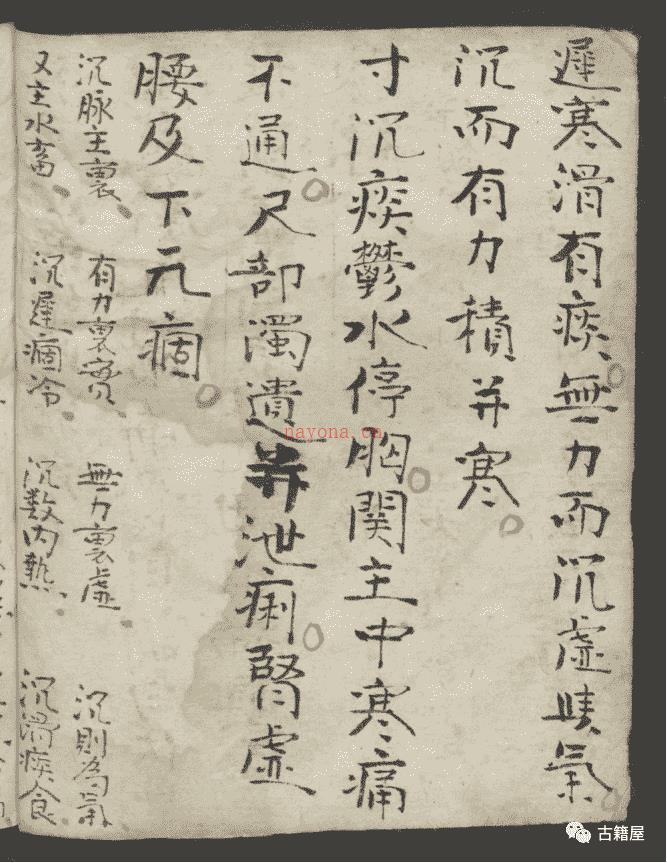 遲寒滑有痰無力而沉虛與氣
沉而有力積并寒
寸沉痰鬱水停胸關主中寒痛
不通尺部濁遺并泄痢腎虛
腰及下元痼
沉脉主裏 有力裏實 無力裏虛 沉則為氣
又主水畜 沉遲痼冷 沉数內熱 沉滑痰食
nayona.cn
古籍屋